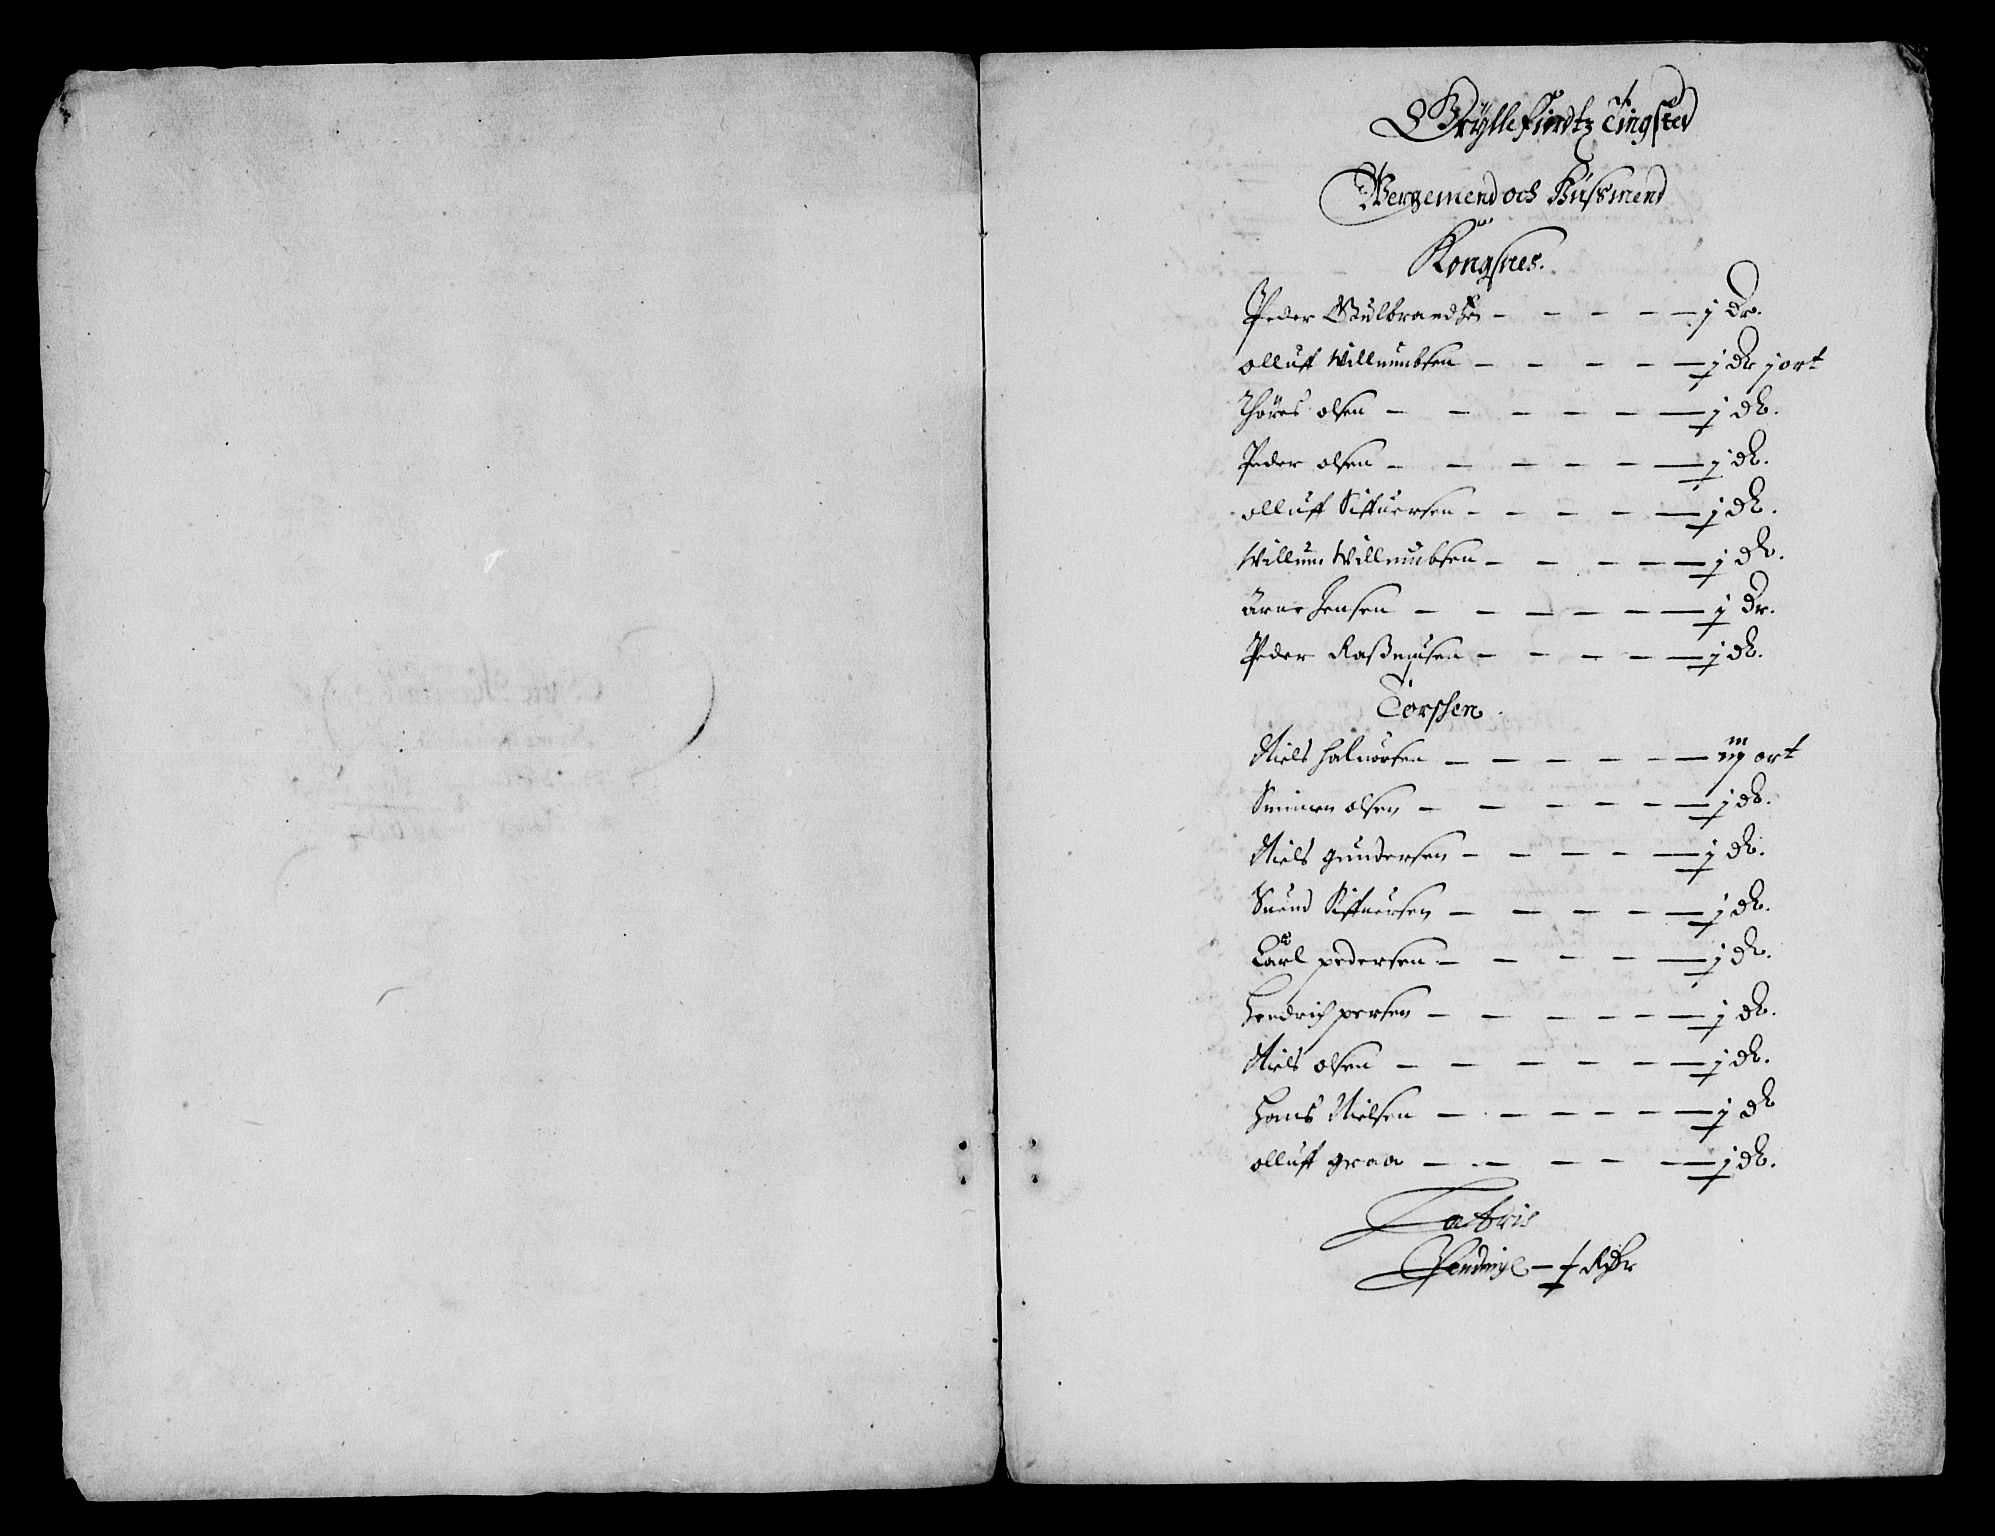 Gryllefiordtz Tingsted
Bergemend och Hussmend
Kongsnes.
Peder Gulbrandsen - - - - - j dr.
Olluff Willumbsen - - - - - j dr j ort
Thöres Olsen - - - - - - j dr.
Peder Olsen - - - - - - j dr.
Olluff Siffuersen - - - - - j dr.
Willum Willumbsen - - - - - j dr.
Arne Jensen - - - - - - j dr.
Peder Rassmusen - - - - - j dr.
Torschen
Niels Haluorsen - - - - - iij ort
Simmen Olsen - - - - - - j dr.
Niels Gundersen - - - - - j dr.
Suend Siffuersen - - - - - j dr.
Carl Pedersen - - - - - j dr.
Hendrich Persen - - - - - - j dr.
Niels Olsen - - - - - - j dr.
Hans Nielsen - - - - - - j dr
Olluff Graa - - - - - - j dr.
Lateris
Pending